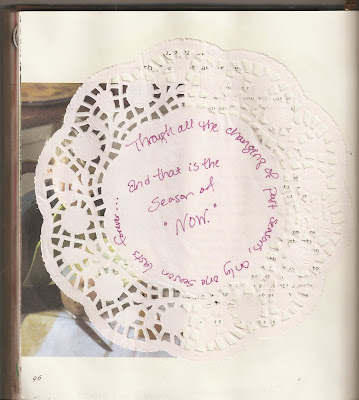 Through all the changing of past seasons, only one season lasts forever...
End that is the
Season of
"NOW."
96